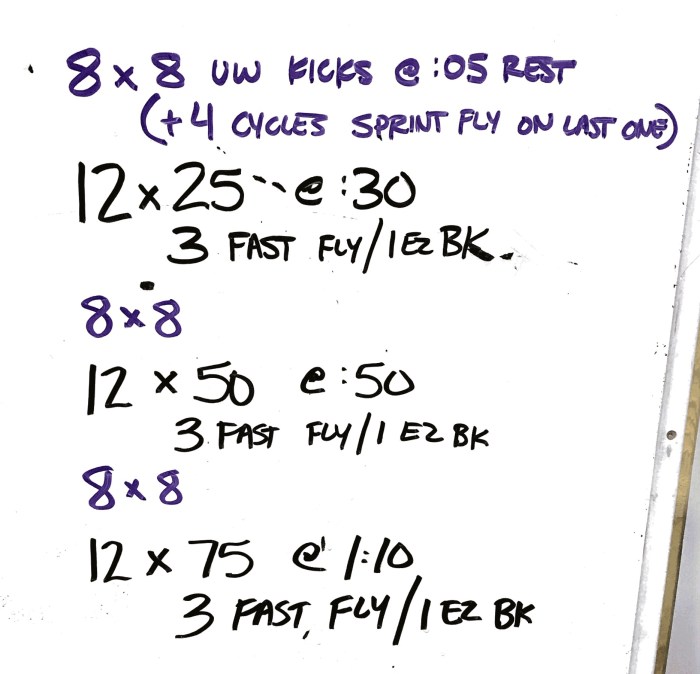 8 x 8 UW KICKS @ :05 REST
(+4 CYCLES SPRINT FLY ON LAST ONE)
12 x 25 @ :30
3 FAST FLY/1 EZ BK.
8 x 8
12 x 50 @ :50
3 FAST FLY/1 EZ BK
8 x 8
12 x 75 @ 1:10
3 FAST, FLY/1 EZ BK